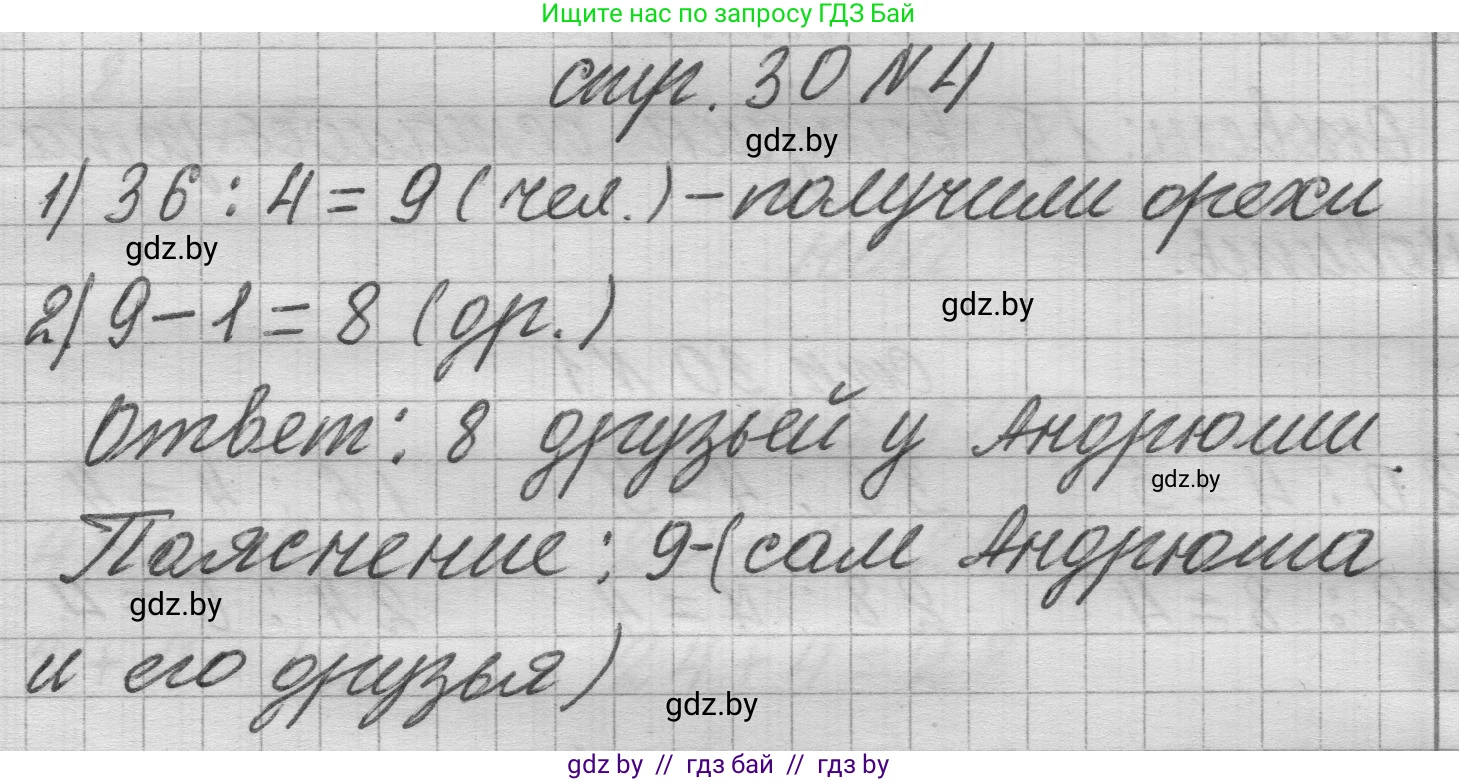 Ищите нас по запросу ГДЗ Бай
стр. 30 N 4
gdz.by
1) 36 : 4 = 9 ( чел. ) – получили орехи
gdz.by
2) 9 – 1 = 8 ( др. )
gdz.by
Ответ: 8 друзьей у Андрюши.
gdz.by
Пояснение: 9-(сам Андрюша
gdz.by
и его друзья)
gdz.by
gdz by // гдз бай // гдз by